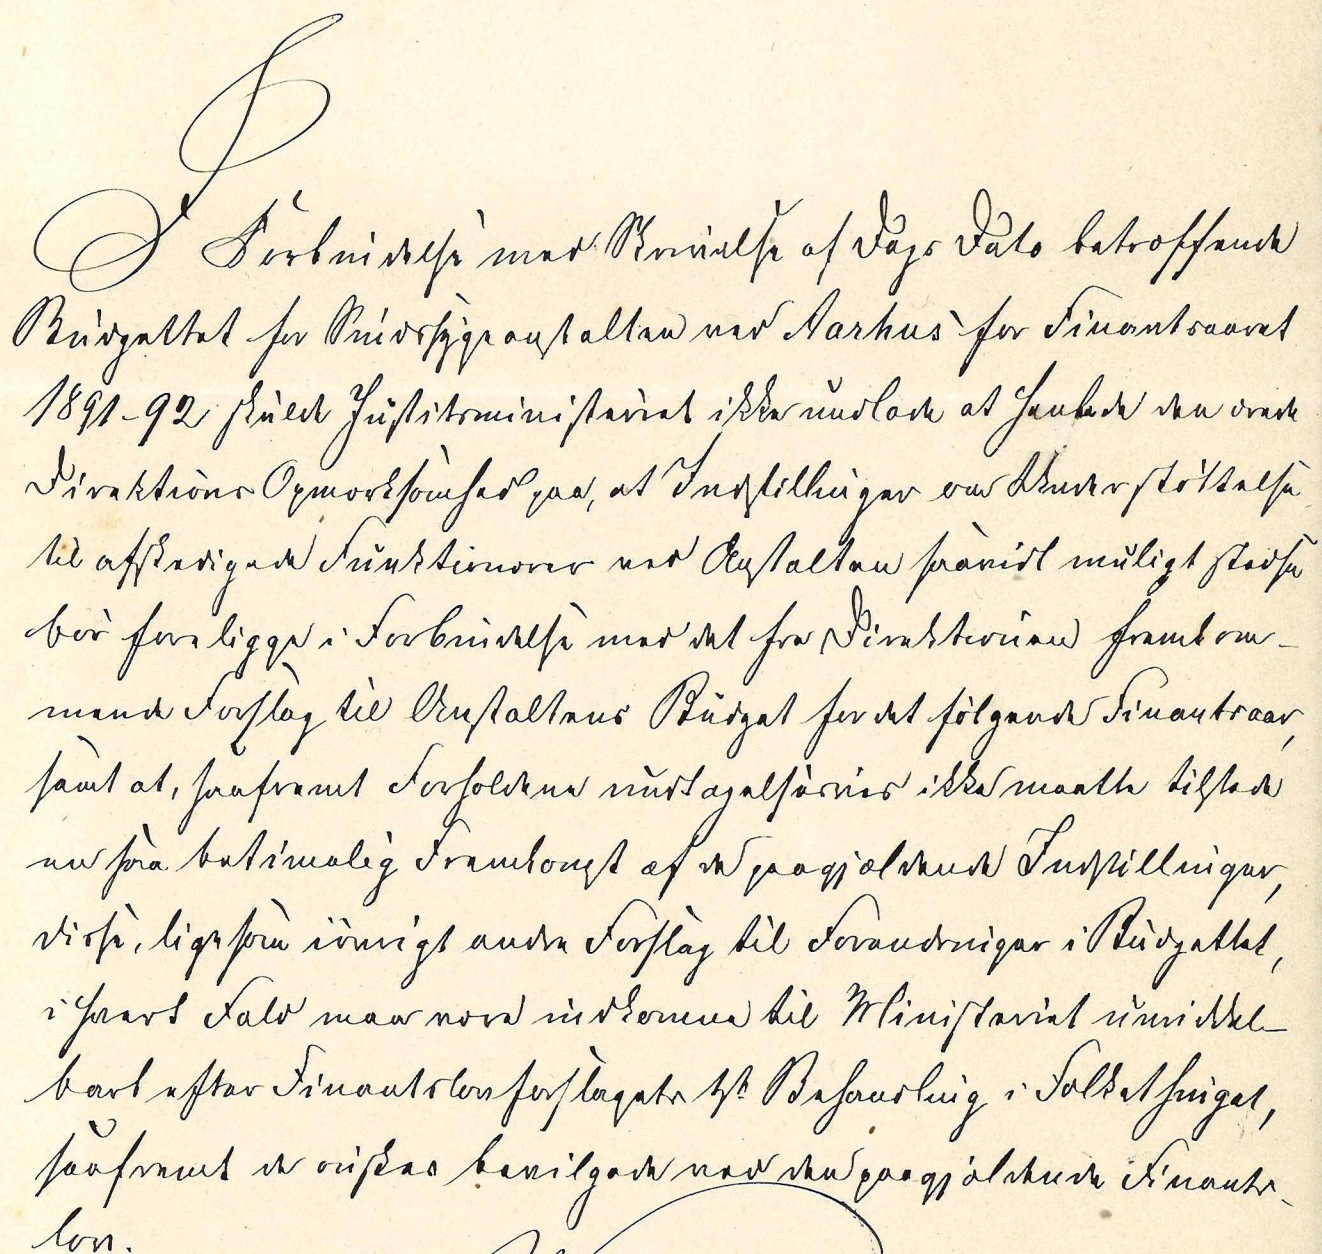 I Forbindelse med Skrivelse af Dags Dato betræffende
Budgettet for Sindssygeanstalten ved Aarhus for Finantsaaret
1891-92 skulde Justitsministeriet ikke undlade at henlede den ærede
Direktions Opmærksomhed paa, at Indstillinger om Understøttelse
til afskedigede Funktionærer ved Anstalten saavidt muligt stedse
bør foreligge i Forbindelse med det fra Direktionen fremkom-
mende Forslag til Anstaltens Budget for det følgende Finantsaar,
samt at, saafremt Forholdene undtagelsesvis ikke maatte tilstede
en saa betimelig Fremkomst af de paagjældende Indstillinger,
disse, ligesom iøvrigt andre Forslag til Forandringer i Budgettet,
i hvert Fald maa være indkomne til Ministeriet umiddel-
bart efter Finantslovforslagets 1ste Behandling i Folkethinget,
saafremt de ønskes bevilgede ved den paagjældende Finants-
lov.